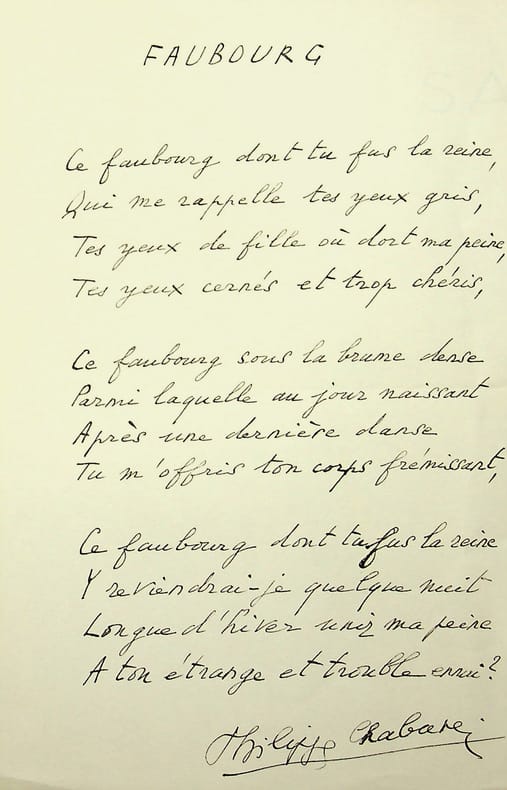 FAUBOURG
Ce faubourg dont tu fus la reine,
Qui me rappelle tes yeux gris,
Tes yeux de fille où dort ma peine,
Tes yeux cernés et trop chéris,
Ce faubourg sous la brume dense
Parmi laquelle au jour naissant
Après une dernière danse
Tu m'offris ton corps frémissant,
Ce faubourg dont tu fus la reine
Y reviendrai-je quelque nuit
Longue d'hiver unir ma peine
A ton étrange et trouble ennui?
Philippe Chabaneix